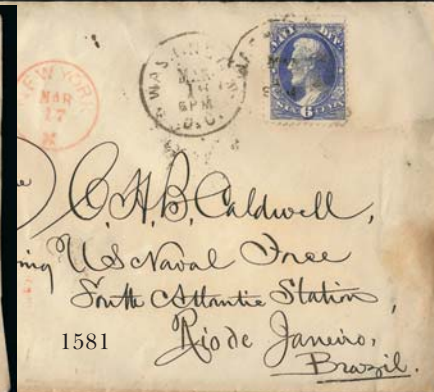 NEW YORK
MAR
17
WASHINGTON
MAR
16
6PM
D.C.
NAVY DEPT.
6
SIX CENTS
C.H.B. Caldwell,
US Naval Force
South Atlantic Station,
Rio de Janeiro,
Brazil.
1581